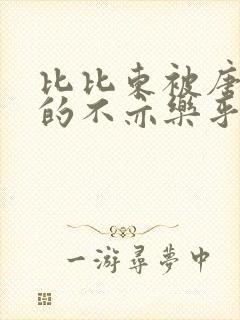 比比東被唐
的不亦樂乎
一游尋夢中